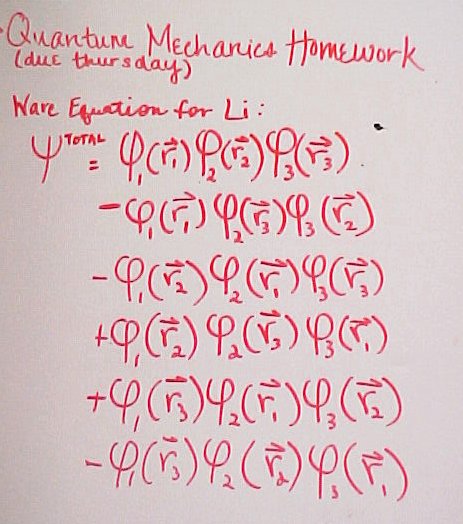 Quantum Mechanics Homework
(due thursday)
Wave Equation for Li:
Ψ^TOTAL = φ₁(r⃗₁) φ₂(r⃗₂) φ₃(r⃗₃)
-φ₁(r⃗₁) φ₂(r⃗₃) φ₃(r⃗₂)
-φ₁(r⃗₂) φ₂(r⃗₁) φ₃(r⃗₃)
+φ₁(r⃗₂) φ₂(r⃗₃) φ₃(r⃗₁)
+φ₁(r⃗₃) φ₂(r⃗₁) φ₃(r⃗₂)
-φ₁(r⃗₃) φ₂(r⃗₂) φ₃(r⃗₁)